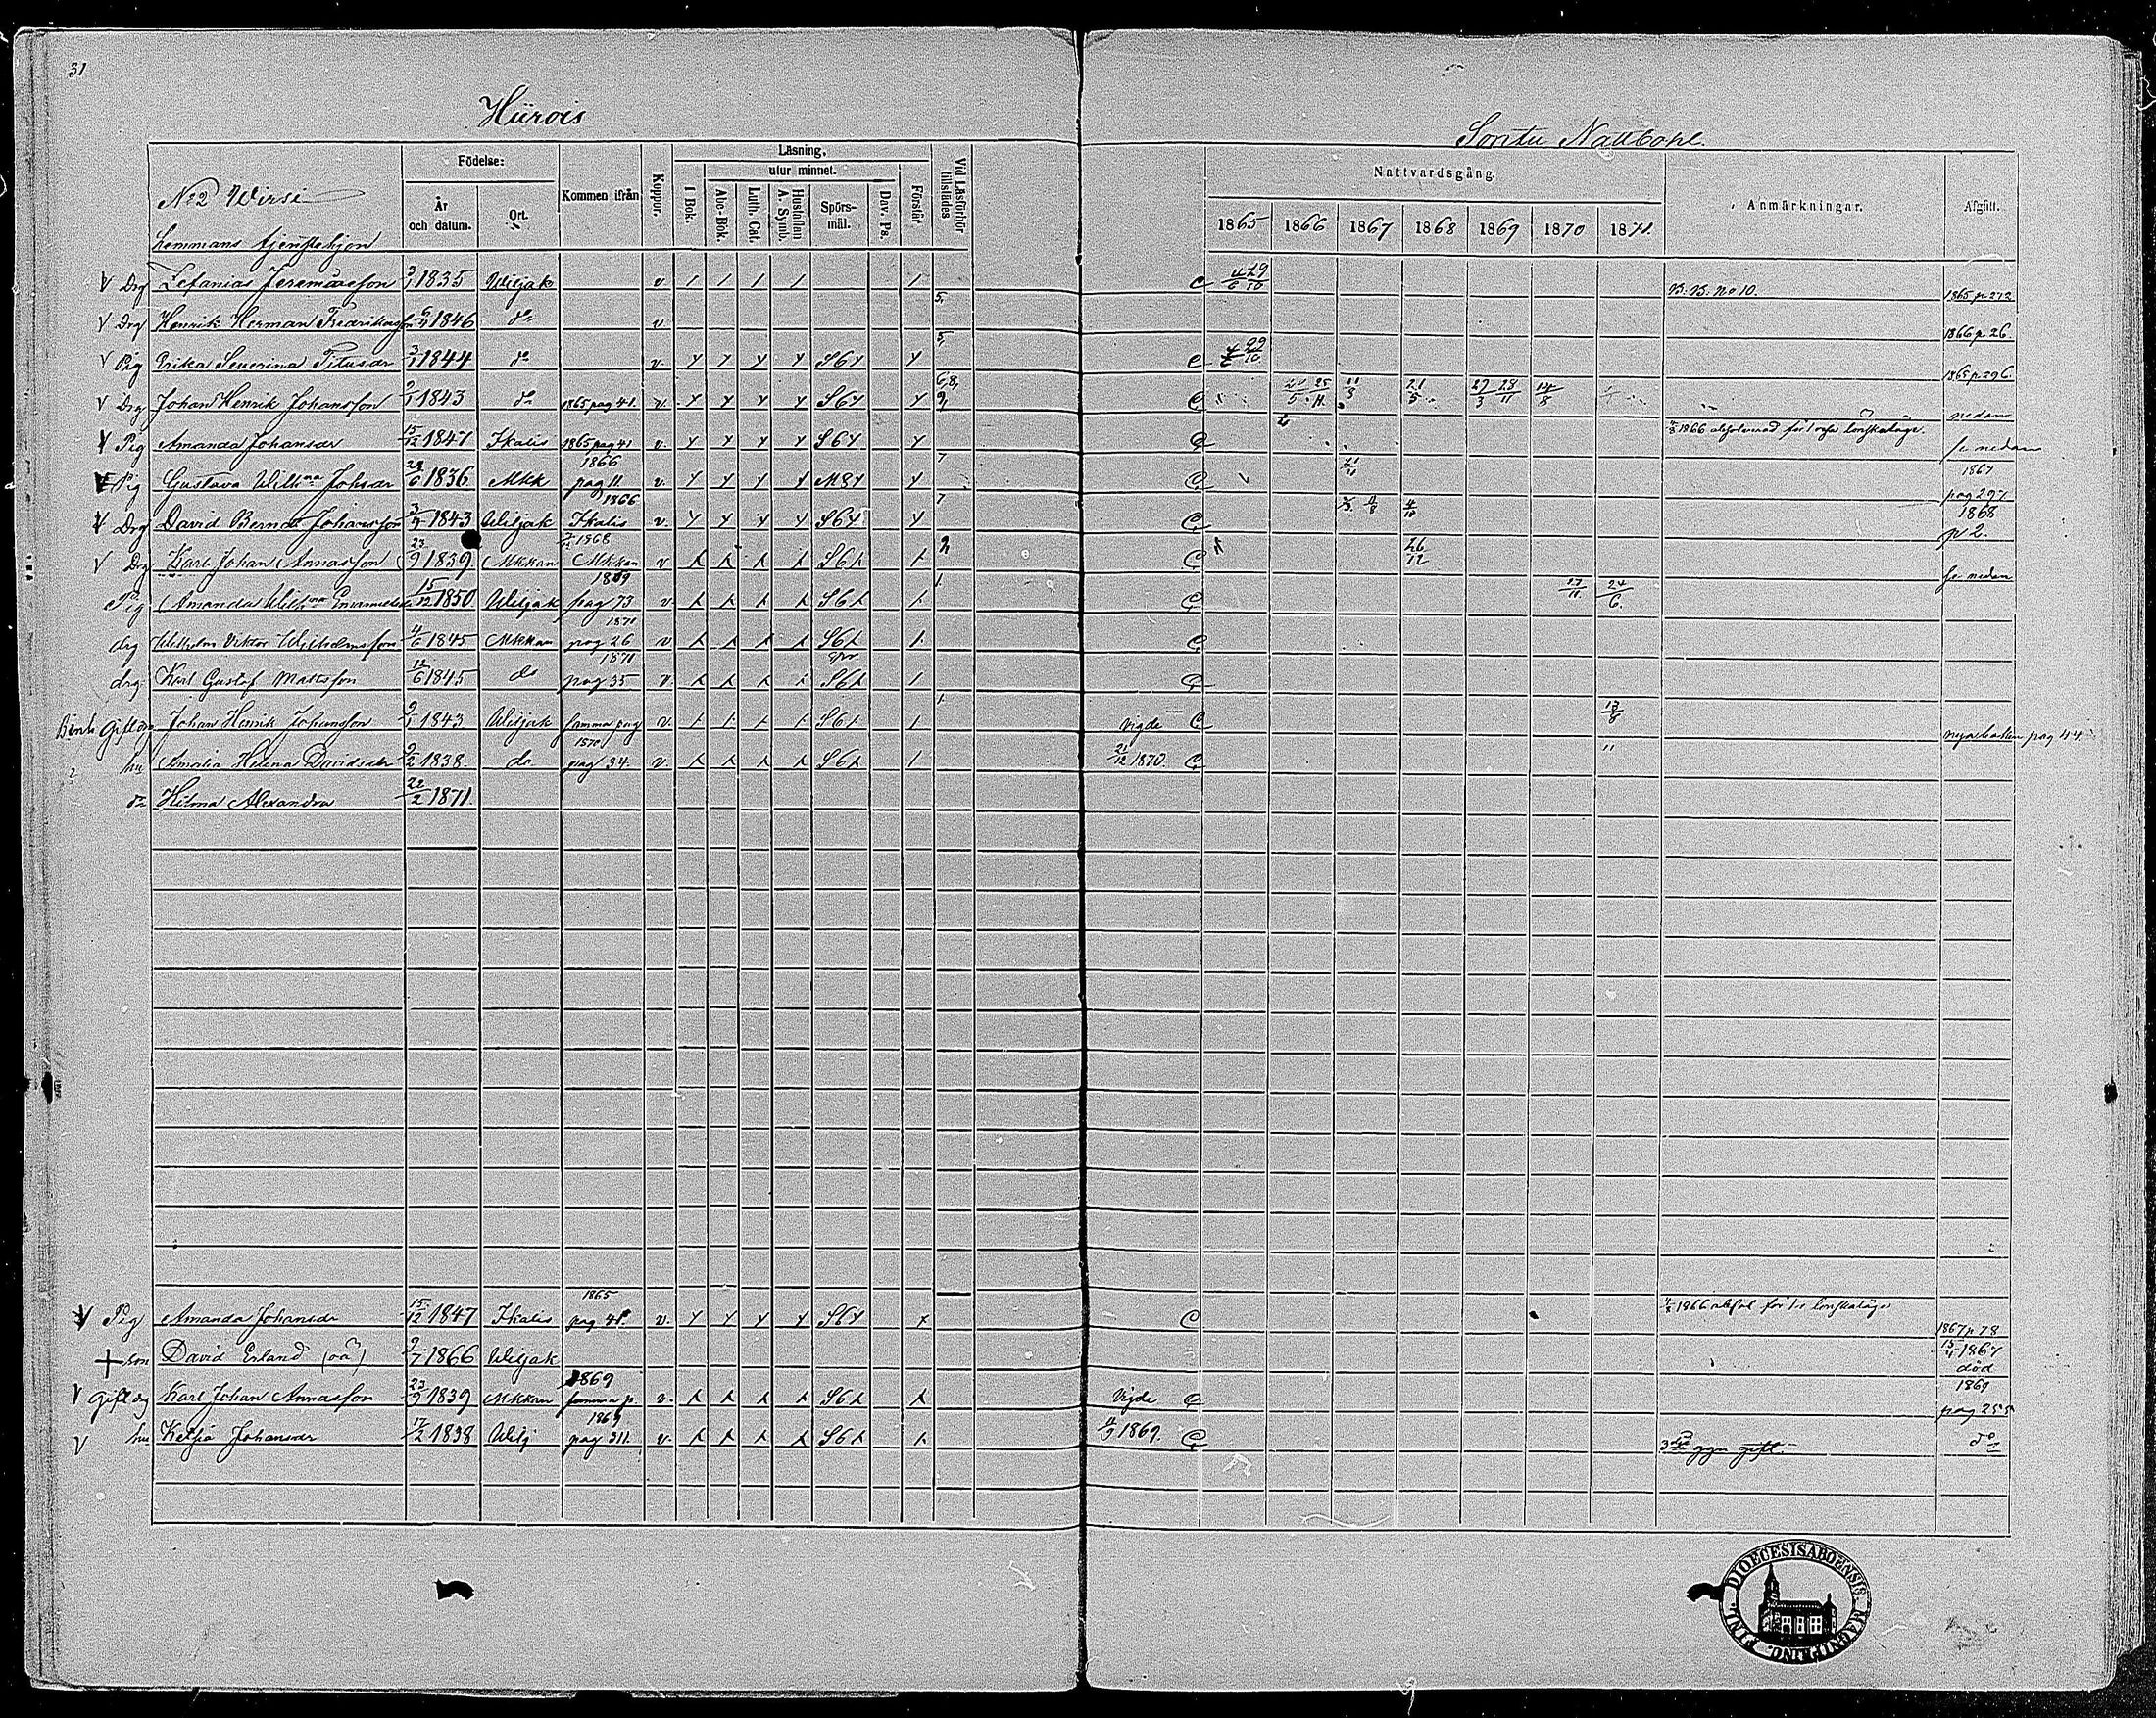 31
Hiirois
Sontu Nattbohl.
Födelse:
Kommen ifrån
Koppor.
Läsning,
utur minnet.
Vid Läsförhör tillstädes
Nattvardsgång.
Anmärkningar.
Afgått.
No 2 Wirsi
År och datum.
Ort.
I Bok.
Abc-Bok.
Luth. Cat.
Hustaflan A. Symb.
Spörs-mål.
Dav. Ps.
Förstår.
1865 1866 1867 1868 1869 1870 1871.
Lemmans tjenstehjon
V Drg Zefanias Jeremiasson 3/1 1835 Wiljak v / / / / / C 4/6 29/10 B. B. No 10. 1865 p. 272
V Drg Henrik Herman Fredriksson 6/4 1846 do v 5, 1866 p 26.
V Pig Erika Severina Titusdr 3/1 1844 do v. y y y y S6y y 5, C 29/10 1865 p. 296.
V Drg Johan Henrik Johansson 9/1 1843 do 1865 pag 41. v. y y y y S6y y 6,8, 9, C 21/5 25/11 11/3 21/5 29/3 28/11 14/8 nedan
V Pig Amanda Johansdr 15/12 1847 Ikalis 1865 pag 41 v. y y y y S6y y C 4/8 1866 absolverad för 1 resa lönskaläge. se nedan
V Pig Gustava Wilhna Johsdr 28/6 1836 Mkk 1866 pag 11. v. y y y y M8y y 7 C 21/11 1867 pag 297
V Drg David Bernd Johansson 3/9 1843 Wiljak 1866 Ikalis v. y y y y S6y y 7 C 4/10 1868 p 2.
V Drg Karl Johan Annasson 23/9 1839 Mkkan 1868 Mkkan v S6 9, C 26/12 se nedan
Pig Amanda Wilhna Emanuelsdr 15/12 1850 Wiljak 1869 pag 73 v S6 1. C 17/11 24/6.
drg Wilhelm Viktor Wilhelmsson 4/6 1845 Mkkan 1871 pag 26 v S6 C
drg Karl Gustaf Mattsson 12/6 1845 do 1871 pag 35 v. S6 C
Gift drg Johan Henrik Johansson 9/1 1843 Wiljak samma pag v. S6 1. Vigde C 13/8 nya boken pag 44
hu Amalia Helena Davidsdr 9/2 1838. do 1870 pag 34. v. S6 21/12 1870. C "
dr Hilma Alexandra 22/2 1871.
V Pig Amanda Johansdr 15/12 1847 Ikalis 1865 pag 41. v. y y y y S6y C 4/8 1866 absol för 1 r lönskaläge 1867 p 78
+ son David Erland (oä) 9/7 1866 Wiljak 13/4 1867 död
V Gift drg Karl Johan Annasson 23/9 1839 Mkkan 1869 samma p. v. S6 Vigde C 1869 pag 255
V hu Ketsia Johansdr 17/2 1838 Wilj 1869 pag 311. v. S6 4/7 1869. C 3dje ggn gift. do
FINL. DIOECESIS ABOENSIS MAGNI